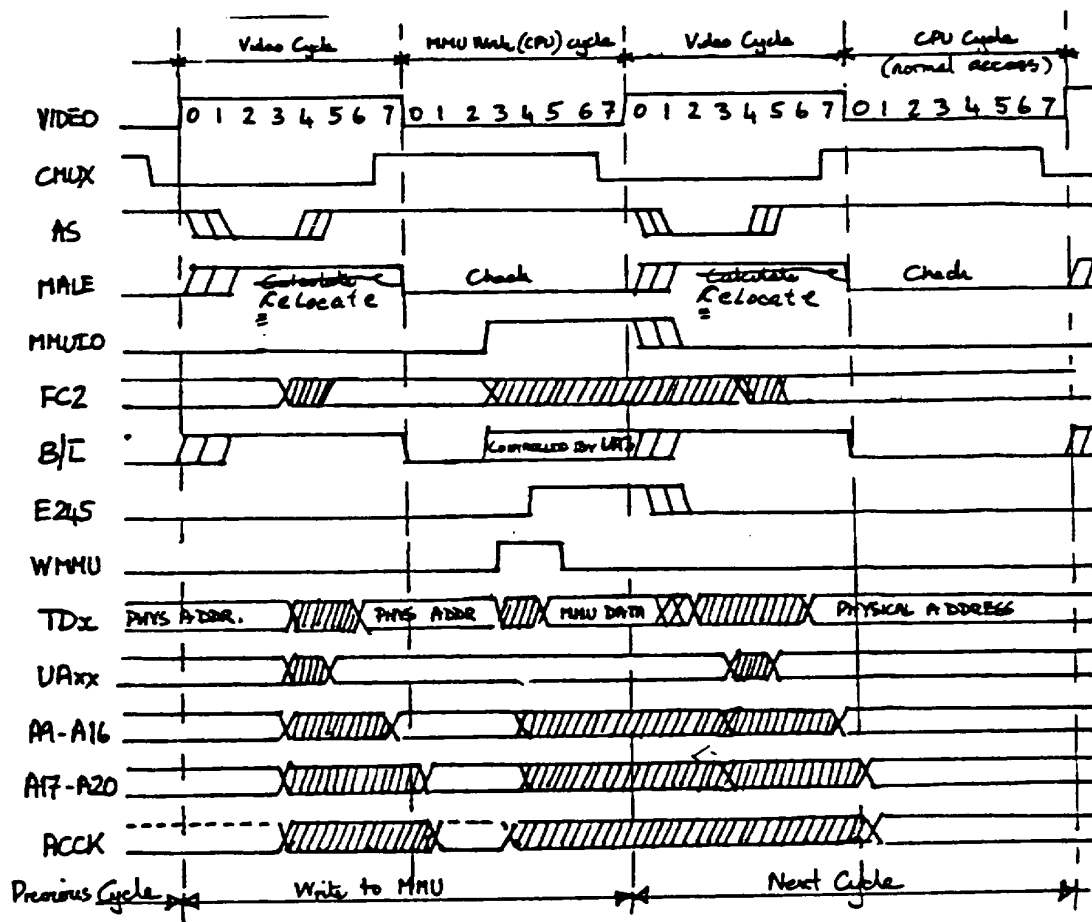 Video Cycle
MMU Write (CPU) cycle
Video Cycle
CPU Cycle
(normal access)
VIDEO 0 1 2 3 4 5 6 7 0 1 2 3 4 5 6 7 0 1 2 3 4 5 6 7 0 1 2 3 4 5 6 7
CMUX
AS
MALE Calculate Check Calculate Check
relocate relocate
MMUIO
FC2
B/I CONTROLLED BY
E245
WMMU
TDx PHYS ADDR. PHYS ADDR MMU DATA PHYSICAL ADDRESS
UAxx
A9-A16
A17-A20
ACCK
Previous Cycle Write to MMU Next Cycle